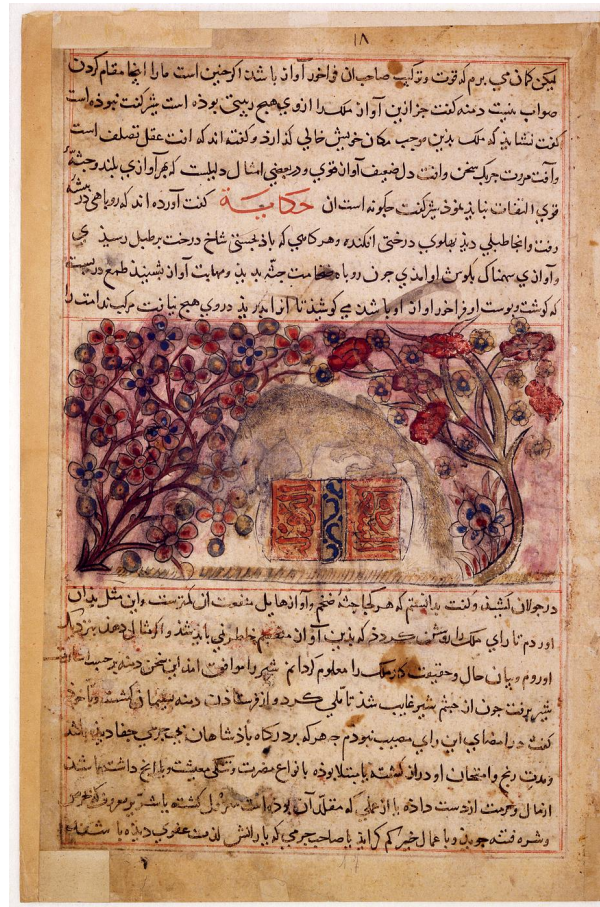 ١٨
لیکن کمان می برم که قوت و ترکیب صاحب ان فراخور آواز باشد اکر جنین است ما را اینجا مقام کردن
صواب نیست دمنه کفت جز ازین آواز ملک را از وی هیج ریبتی بوذه است شیر کفت نبوذه است
کفت نشاید که ملک بدین موجب مکان خویش خالی کذارد و کفته اند که افت عقل تصلف است
وآفت مروت جربک سخن وافت دل ضعیف آواز قوی و در بعضی امثال دلیلست که بهر آوازی بلند و جثه
قوی التفات نباید نموذ شیر کفت جکونه است ان حکایة کفت آورده اند که روباهی در بیشه
رفت وانجا طبلی دیذ بهلوی درختی افکنده و هر کاهی که باذ بجستی شاخ درخت بر طبل رسیذی
و آوازی سهمناک بکوش او امذی جون روباه ضخامت جثه بدید و مهابت آواز بشنیذ طمع در بست
که کوشت و بوست او فراخور اواز او باشد می کوشید تا از ابدرید در وی هیج نیافت مرکب ندامت را
در جولان کشید و کفت بدانستم که هر کجا جثه ضخم و آواز هایل منفعت ان کمترست واین مثل بدان
اوردم تا رای ملک را روشن کردد که بدین آواز متقسم خاطر نمی باید شد و اکر مثال دهد نزدیک
او روم و بیان حال و حقیقت کار ملک را معلوم کردانم شیر را موافق امد این سخن دمنه بر حسب اشارت
شیر برفت جون از جشم شیر غایب شذ تاملی کرد و از فرستاذن دمنه بشیمان کشت و با خوذ
کفت در امضای این رای مصیب نبودم جه هر که بر درکاه باذشاهان بی جرمی جفا دیذه باشد
و مدت رنج و امتحان او دراز کشته یا مبتلا بوذه با نواع مضرت و تنکی معیشت و یا انج داشته باشد
از مال و حرمت از دست داذه یا از عملی که مقلد آن بوذه است معزول کشته یا شریر معروف که بحرص
و شره فتنه جوید و با عمال خیر کم کراید یا صاحب جرمی که یارانش لذت عفو دیذه باشند